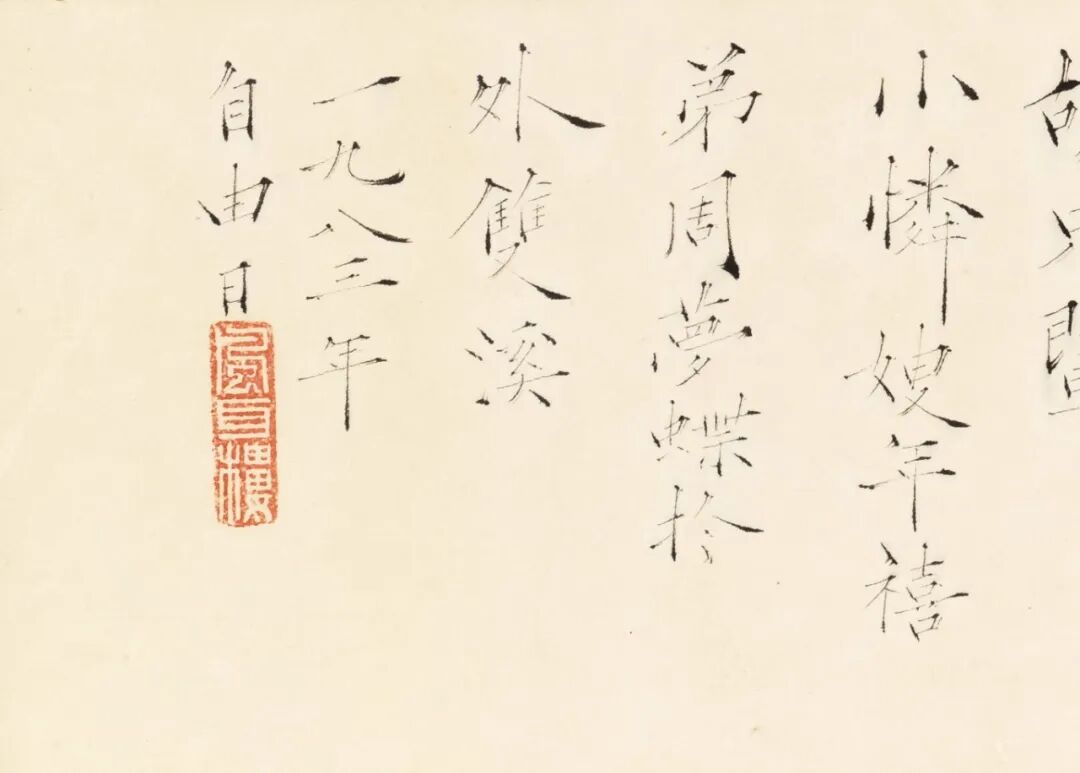 小憐嫂年禧
弟周夢蝶扵
外雙溪
一九八三年
自由日
風耳樓